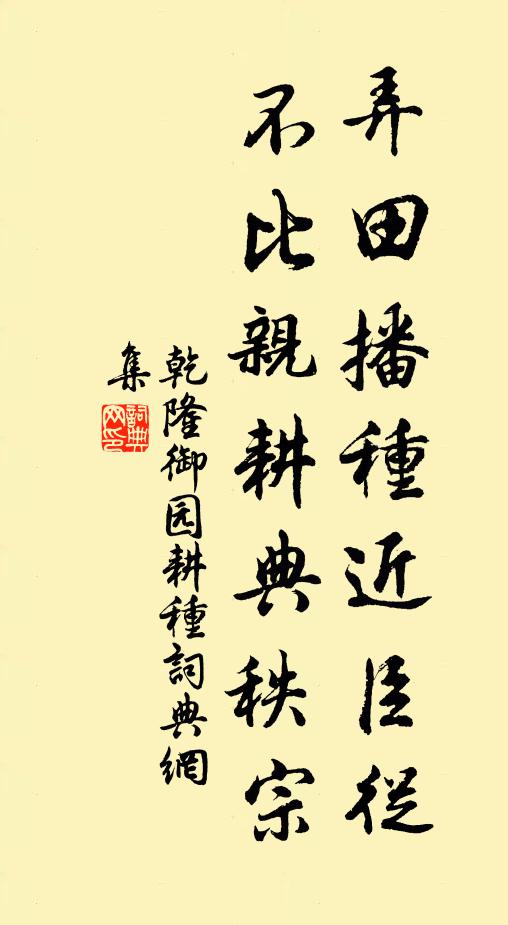 弄田播種近臣從
不比親耕典秩宗
乾隆御园耕種詞典網
集
詞典网印